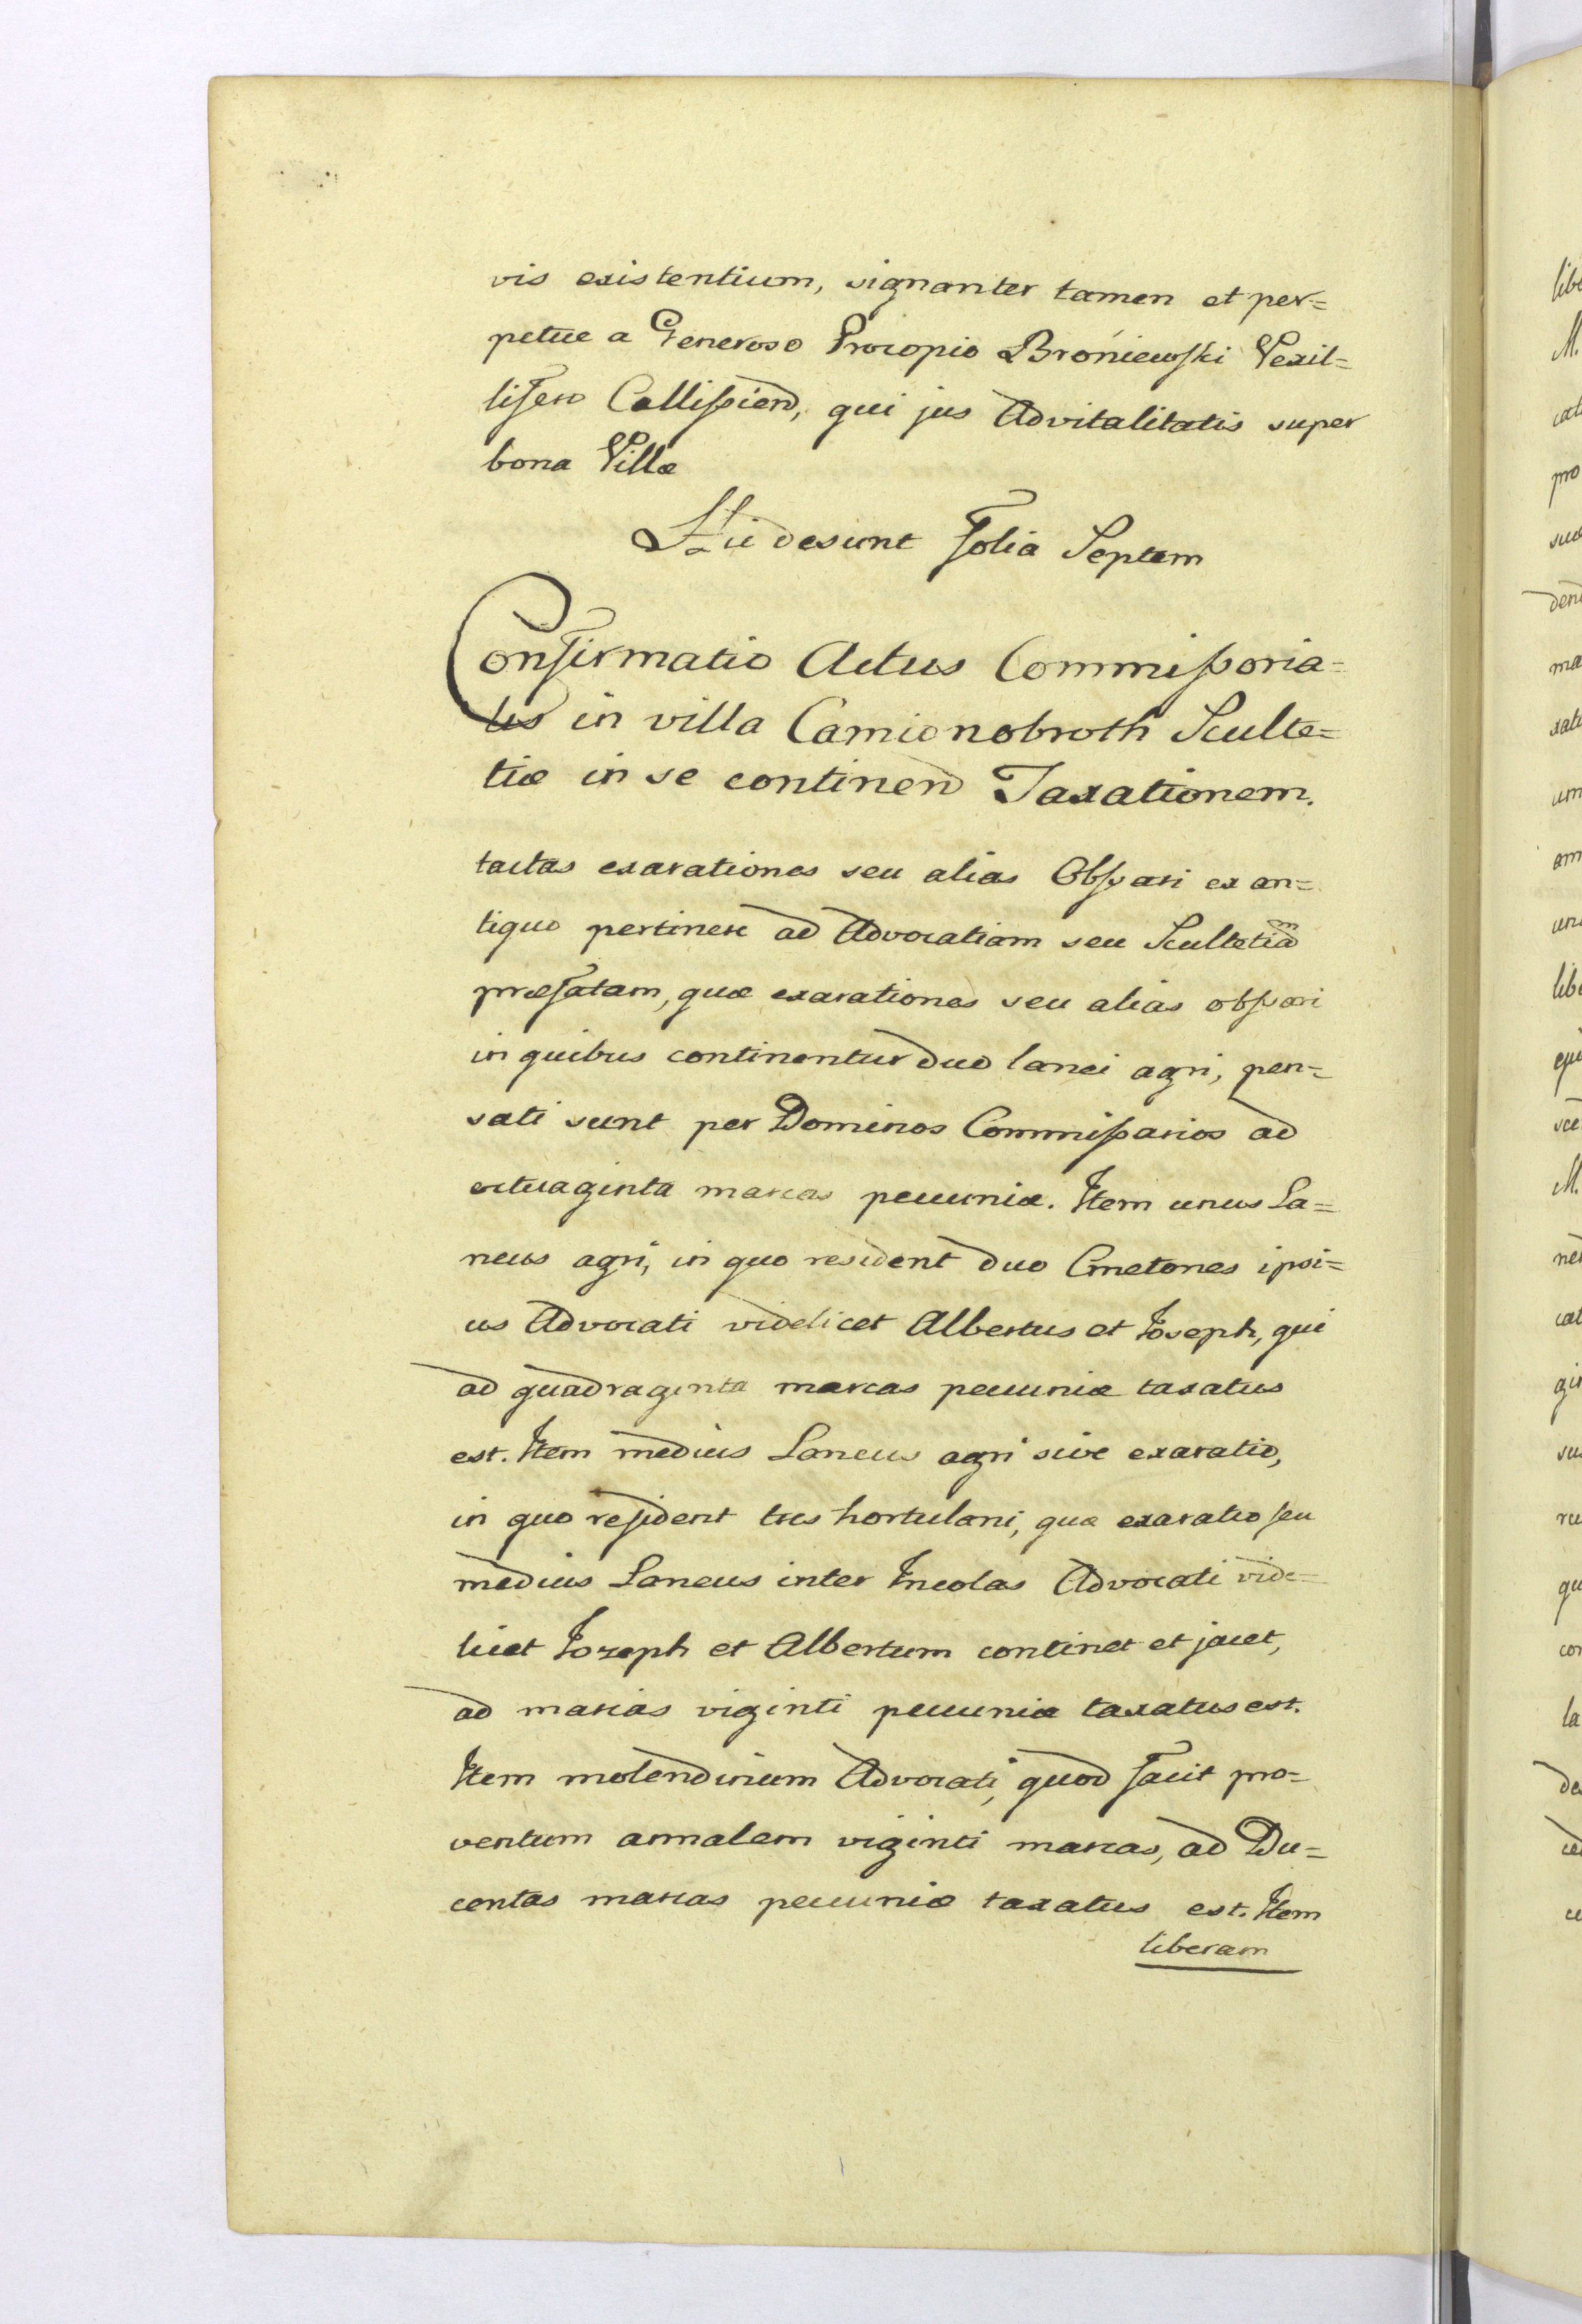 vis existentium, signanter tamen et per=
petue a Generoso Procopio Broniewski Vexil=
lifero Callissien, qui jus Advitalitatis super
bona Villæ
Hic desunt folia Septem
Confirmatio Actus Commissoria=
lis in villa Camionobroth Sculte=
tiæ in se continen Taxationem.
tactas exarationes seu alias Obszari ex an=
tiquo pertinere ad Advocatiam seu Scultetiam
præfatam, quæ exarationes seu alias obszari
in quibus continentur duo lanei agri, pen=
sati sunt per Dominos Commissarios ad
octuaginta marcas pecuniæ. Item unus La=
neus agri, in quo resident duo Cmetones ipsi=
us Advocati videlicet Albertus et Joseph, qui
ad quadraginta marcas pecuniæ taxatus
est. Item medius Laneus agri sive exaratio,
in quo resident tres hortulani, quæ exaratio seu
medius Laneus inter Incolas Advocati vide=
licet Jozeph et Albertum continet et jacet,
ad marcas viginti pecuniæ taxatus est.
Item molendinum Advocati, quod facit pro=
ventum annalem viginti marcas, ad Du=
centas marcas pecuniæ taxatus est. Item
liberam